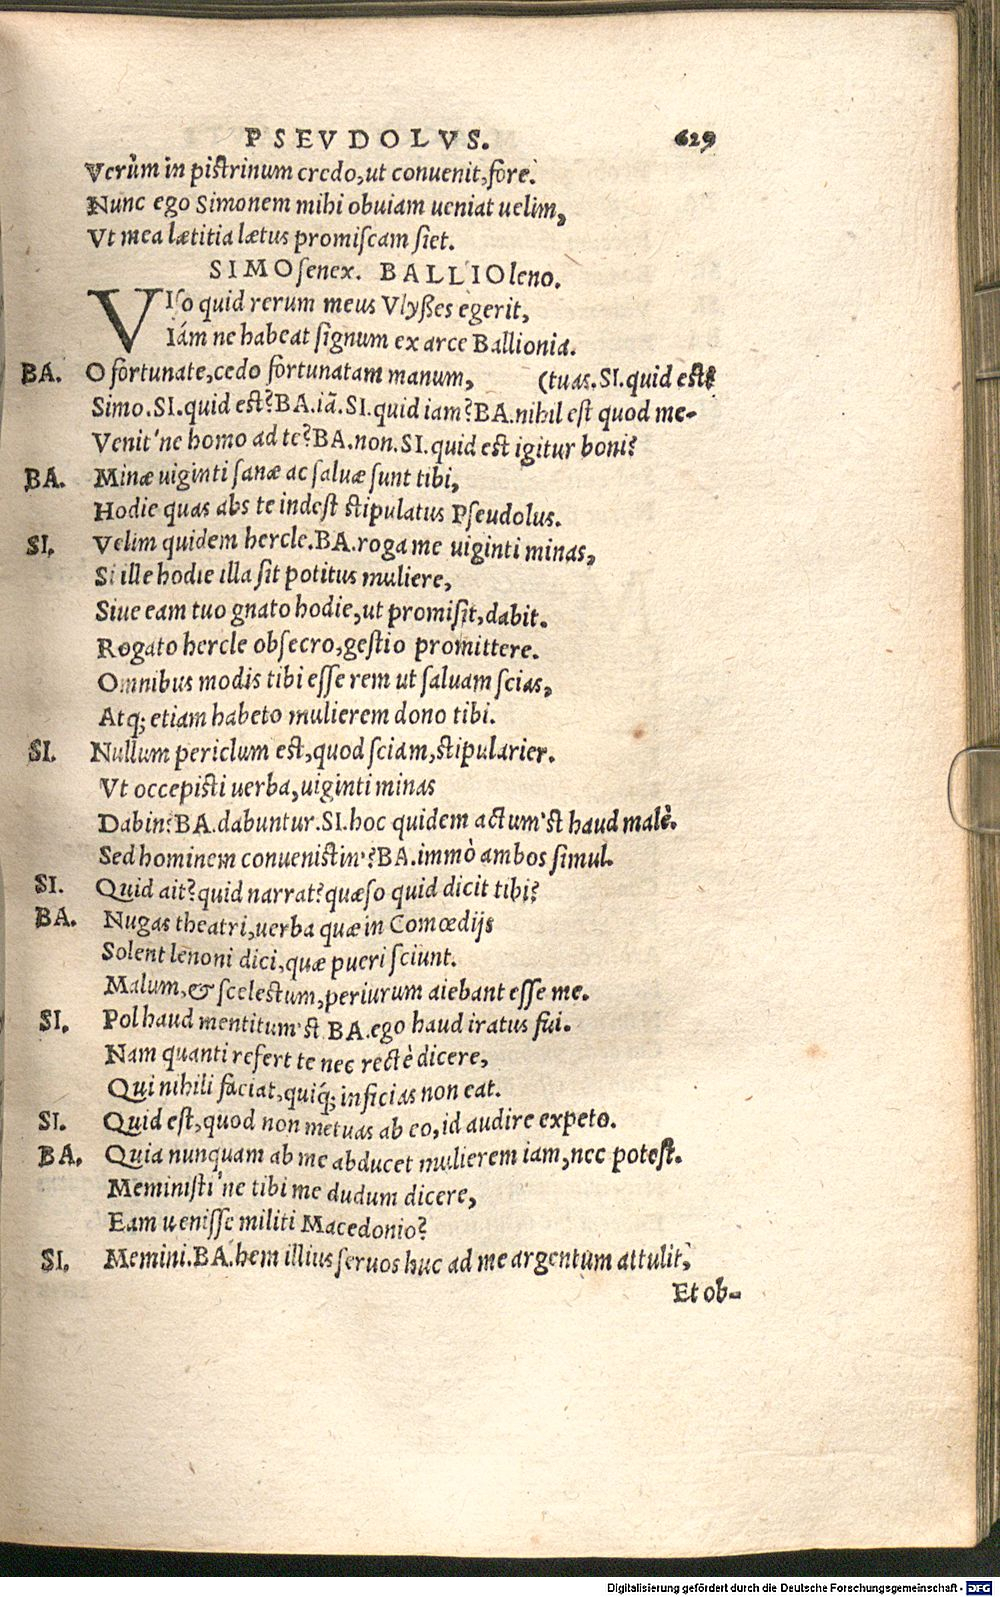 PSEVDOLVS. 629
Verùm in pistrinum credo, ut convenit, fore.
Nunc ego Simonem mihi obuiam ueniat uelim,
Vt mea lætitia lætus promiscam siet.
SIMO senex. BALLIO leno.
VIso quid rerum meus Vlysses egerit,
Iám ne habeat signum ex arce Ballionia.
BA. O fortunate, cedo fortunatam manum, (tuas. SI. quid est?
Simo. SI. quid est? BA. iã. SI. quid iam? BA. nihil est quod me-
Venit'ne homo ad te? BA. non. SI. quid est igitur boni?
BA. Minæ uiginti sanæ ac saluæ sunt tibi,
Hodie quas abs te indest stipulatus Pseudolus.
SI. Velim quidem hercle. BA. roga me uiginti minas,
Si ille hodie illa sit potitus muliere,
Siue eam tuo gnato hodie, ut promisit, dabit.
Rogato hercle obsecro, gestio promittere.
Omnibus modis tibi esse rem ut saluam scias,
Atq; etiam habeto mulierem dono tibi.
SI. Nullum periclum est, quod sciam, stipularier.
Vt occepisti uerba, uiginti minas
Dabin? BA. dabuntur. SI. hoc quidem actum'st haud malè.
Sed hominem convenistin'? BA. immò ambos simul.
SI. Quid ait? quid narrat? quæso quid dicit tibi?
BA. Nugas theatri, uerba quæ in Comœdijs
Solent lenoni dici, quæ pueri sciunt.
Malum, & scelestum, periurum aiebant esse me.
SI. Pol haud mentitum'st BA. ego haud iratus fui.
Nam quanti refert te nec rectè dicere,
Qui nihili faciat, quiq́; inficias non eat.
SI. Quid est, quod non metuas ab eo, id audire expeto.
BA. Quia nunquam ab me abducet mulierem iam, nec potest.
Meministi'ne tibi me dudum dicere,
Eam uenisse militi Macedonio?
SI. Memini. BA. hem illius seruos huc ad me argentum attulit,
Et ob-
Digitalisierung gefördert durch die Deutsche Forschungsgemeinschaft - DFG